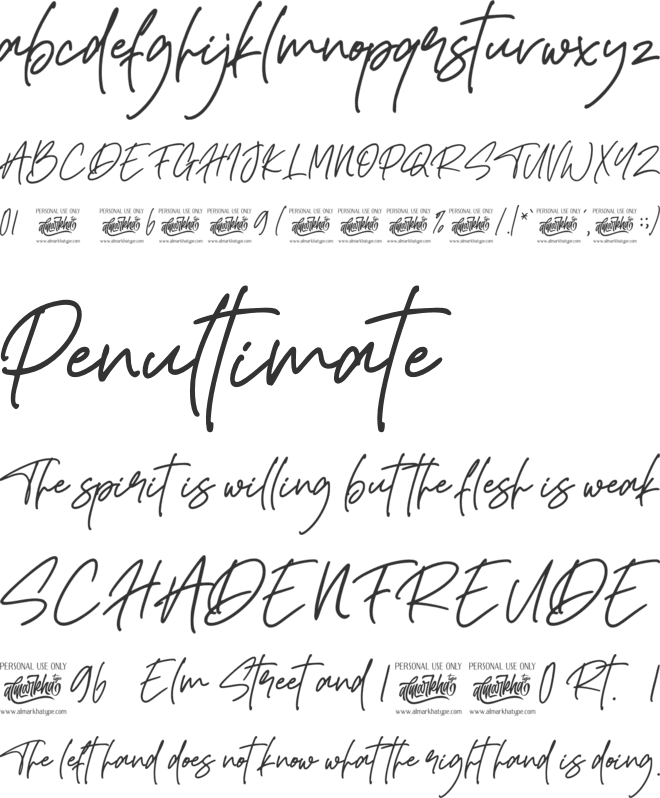 abcdefghijklmnopqrstuvwxyz
ABCDEFGHIJKLMNOPQRSTUVWXYZ
01 PERSONAL USE ONLY almarkha type www.almarkhatype.com PERSONAL USE ONLY almarkha type www.almarkhatype.com 6 PERSONAL USE ONLY almarkha type www.almarkhatype.com PERSONAL USE ONLY almarkha type www.almarkhatype.com 9 ( PERSONAL USE ONLY almarkha type www.almarkhatype.com PERSONAL USE ONLY almarkha type www.almarkhatype.com PERSONAL USE ONLY almarkha type www.almarkhatype.com % PERSONAL USE ONLY almarkha type www.almarkhatype.com / . | * ` PERSONAL USE ONLY almarkha type www.almarkhatype.com ' , PERSONAL USE ONLY almarkha type www.almarkhatype.com : ; )
Penultimate
The spirit is willing but the flesh is weak
SCHADENFREUDE
PERSONAL USE ONLY almarkha type www.almarkhatype.com 96 Elm Street and 1 PERSONAL USE ONLY almarkha type www.almarkhatype.com PERSONAL USE ONLY almarkha type www.almarkhatype.com 0 Rt. 1
The left hand does not know what the right hand is doing.